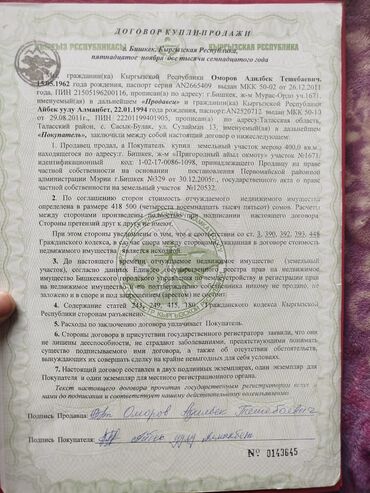 ДОГОВОР КУПЛИ-ПРОДАЖИ
КЫРГЫЗ РЕСПУБЛИКАСЫ КЫРГЫЗСКАЯ РЕСПУБЛИКА
Бишкек, Кыргызская Республика,
пятнадцатое ноября две тысячи семнадцатого года
гражданин(ка) Кыргызской Республики Оморов Адилбек Тешебаевич,
15.05.1962 года рождения, паспорт серия AN2665409 выдан МКК 50-02 от 26.12.2011
года, ПИН 21505196200116, прописан(а) по адресу: г.Бишкек, ж-м Мурас-Ордо уч.1671,
именуемый(ая) в дальнейшем «Продавец» и гражданин(ка) Кыргызской Республики
Айбек уулу Алманбет, 22.01.1994 года рождения, паспорт AN2520712 выдан МКК 50-13
от 29.08.2011г., ПИН 22201199401905, прописан(а) по адресу:Таласская область,
Таласский район, с. Сасык-Булак, ул. Сулайман 13, именуемый(ая) в дальнейшем
«Покупатель», заключили между собой этот договор о нижеследующем:
1. Продавец продал, а Покупатель купил земельный участок мерою 400,0 кв.м.,
находящегося по адресу: г. Бишкек, ж-м «Пригородный айыл окмоту» участок №1671,
идентификационный код 1-02-17-0086-1098, принадлежащего Продавцу на праве
частной собственности на основании постановления Первомайской районной
администрации Мэрии г.Бишкек №329 от 30.12.2005г., государственного акта о праве
частной собственности на земельный участок №120532.
2. По соглашению сторон стоимость отчуждаемого недвижимого имущества
определена в размере 418 500 (четыреста восемнадцать тысяч пятьсот) сомов. Расчет
между сторонами произведен полностью при подписании настоящего договора.
Стороны претензий друг к другу не имеют.
При этом стороны уведомлены о том, что в соответствии со ст. 3, 390, 392, 393, 448
Гражданского кодекса, в случае спора между сторонами, указанная в договоре стоимость
недвижимого имущества является исходной.
3. До настоящего времени отчуждаемое недвижимое имущество (земельный
участок), согласно данным Единого государственного реестра прав на недвижимое
имущество Бишкекского городского управления по землеустройству и регистрации прав
на недвижимое имущество и подтверждению Продавца никому не продано, не
заложено и в споре и под запрещением (арестом) не состоит.
4. Содержание статей 245, 249, 415, 180, Гражданского кодекса Кыргызской
Республики сторонам разъяснено.
5. Расходы по заключению договора уплачивает Покупатель.
6. Стороны договора в присутствии государственного регистратора заявили, что они
не лишены дееспособности, не страдают заболеваниями, препятствующими понимать
существо подписываемого ими договора, а также об отсутствии обстоятельств,
вынуждающих их совершить сделку на крайне невыгодных для себя условиях.
7. Настоящий договор составлен в двух подлинных экземплярах, один экземпляр для
Покупателя и один экземпляр для местного регистрационного органа.
Текст настоящего договора прочитан государственным регистратором вслух
нами до подписания и соответствует нашим действительным намерениям.
Подпись Продавца: Оморов Адилбек Тешебаевич
Подпись Покупателя: Айбек уулу Алманбет
№ 0143645